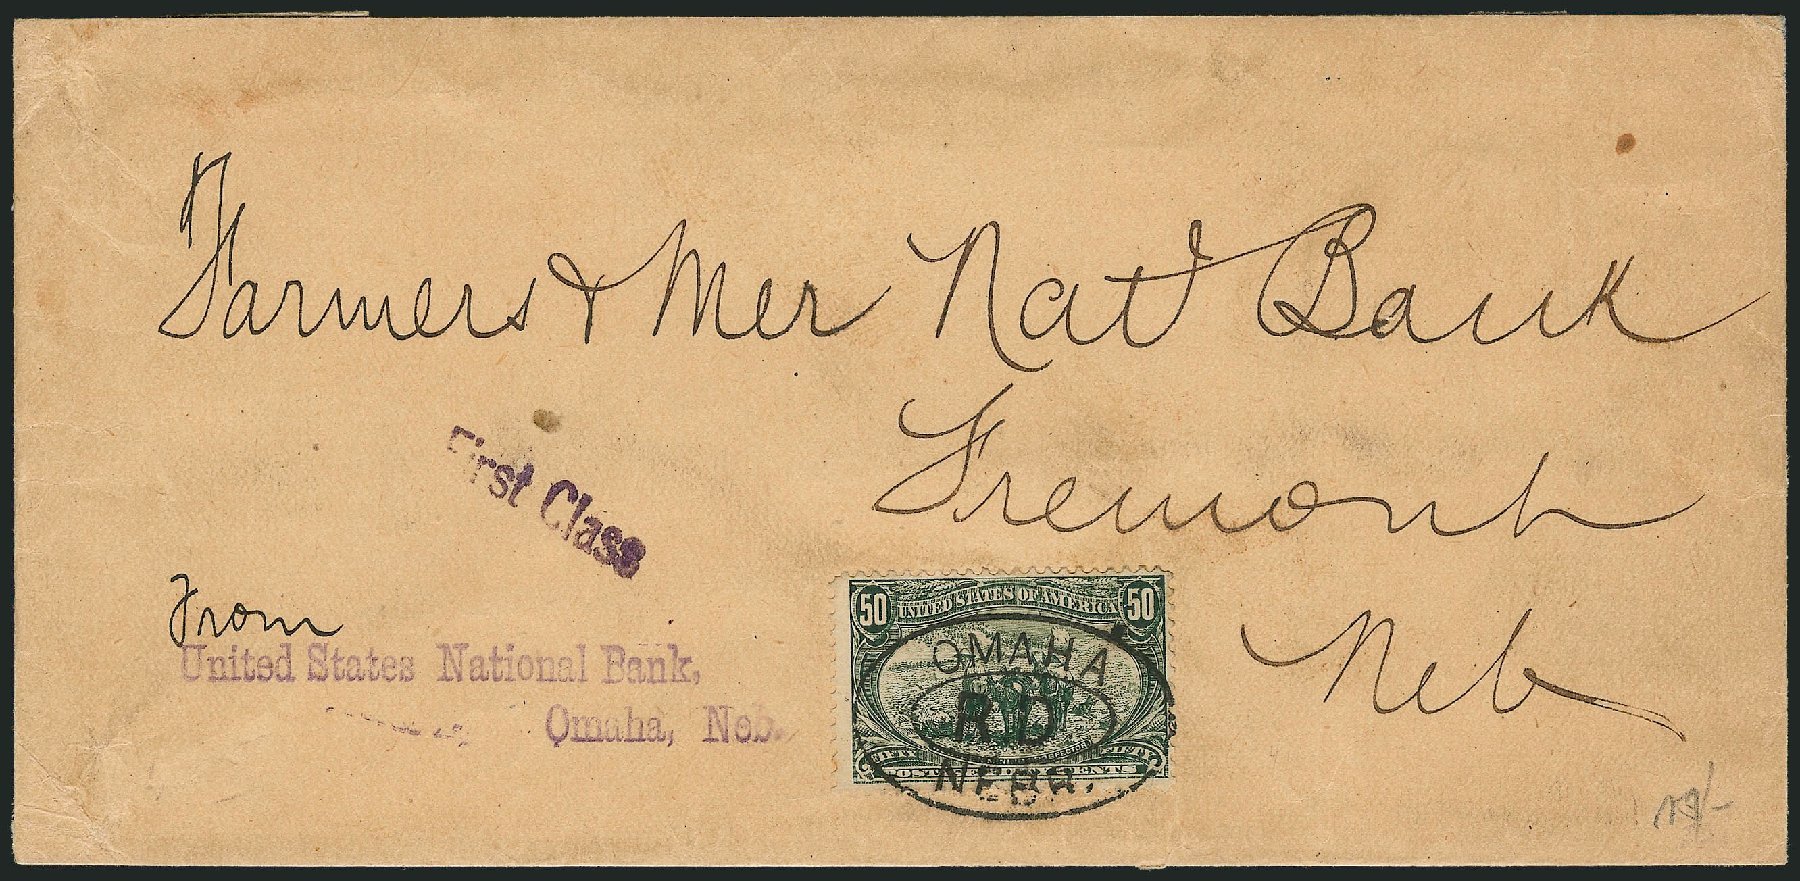 Farmers & Mer Nat'l Bank
Fremont
Neb
First Class
From
United States National Bank,
Omaha, Neb.
50 UNITED STATES OF AMERICA 50
OMAHA
R D
NEBR.